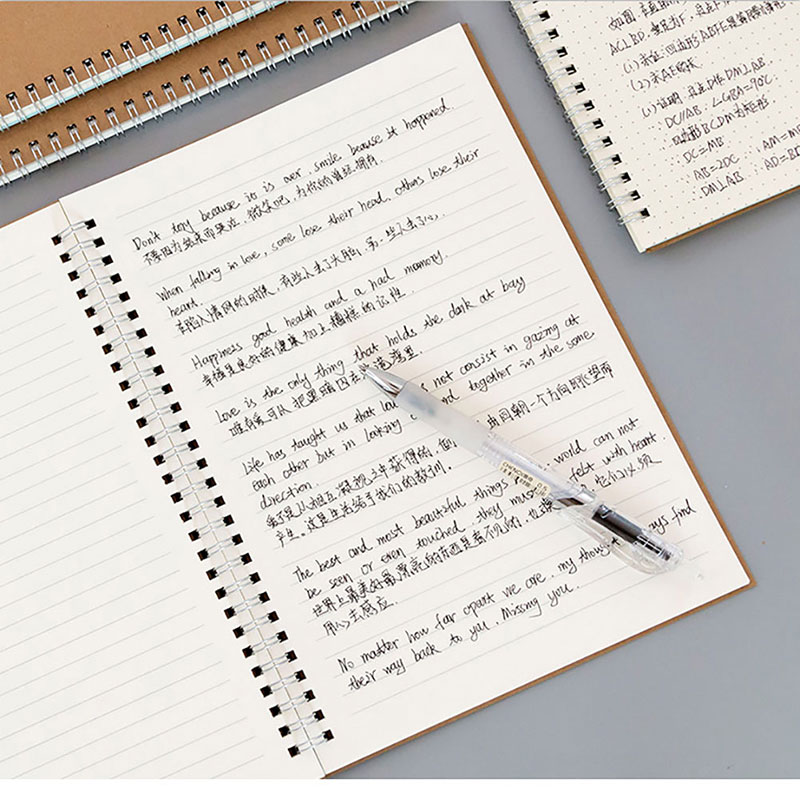 Don't tery because in is over, smile beause it happened.
不要因为结束而哭泣，微笑吧，为你的曾经拥有
When falling in love, some lose their head, others lose their
heart.
在陷入情网的时候，有些人丢了头脑，另一些人丢了心
Happiness good health and a had mamory.
幸福是良好的健康加上糟糕的记性
Love is the only thing that holds the dark at bay
唯有爱可以把黑暗囚在
Life has taught us that not consist in gazing at
each other but in looking together in the same
direction.
爱不是从相互凝视之中获得的，由同朝一个方向眺望而
产生。这是生活给予我们的教训。
The best and most beautiful things world can not
be seen or even touched, they must felt with heart.
世界上最美好最漂亮的东西是看不见的，也摸 它们必须
用心去感应.
No matter how far apart we are, my thoug ays find
their way back to you. Missing you.
0.5
如图
(1)求证:四边形ABFE是
(2)求AE的长
(1)证明
DC//AB ∠CBA=90°
四边形BCDM为矩形
DC=MB
AB=2DC AM=M
DM⊥AB AD=BD